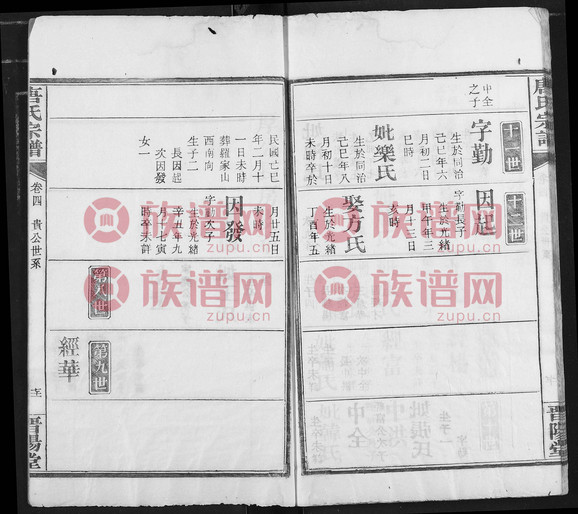 唐氏宗譜
十一世
中全
之子
字勤
生於同治
己巳年六
月初二日
巳時
妣樂氏
生於同治
己巳年八
月初十日
未時卒於
民國己巳
年二月十
一日未時
葬羅家山
西南向
生子二
長因起
次因發
女一
十二世
因起
字勤長子
生於光緒
甲午年三
月十三日
亥時
娶方氏
生於光緒
丁酉年五
月廿五日
未時
因發
字勤次子
生於光緒
辛丑年九
月十七寅
時卒未許
第八世
第九世
經華
唐氏宗譜
卷四
貴公世系
晋陽堂
晋陽堂
族谱网
zupu.cn
族谱网
zupu.cn
族谱网
zupu.cn
族谱网
zupu.cn